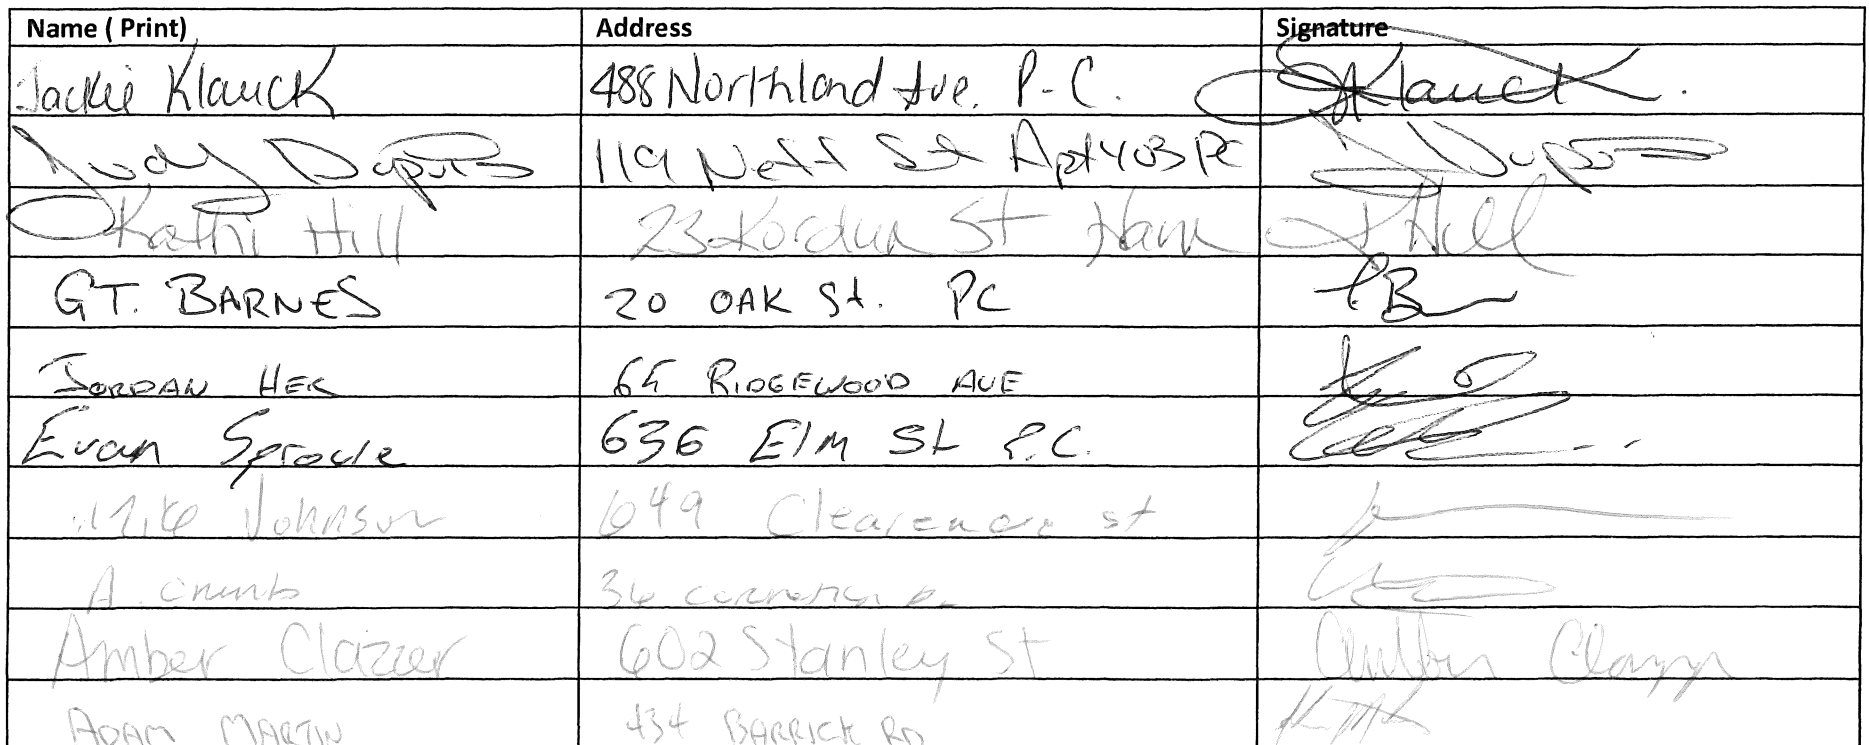 Name ( Print) Address Signature
Jackie Klauck 488 Northland Ave. P-C. JKlauck.
Judy Dupuis 119 Neff St Apt 403 PC J Dupuis
Kathi Hill 23 St Ham K Hill
GT. BARNES 20 OAK St. PC
JORDAN HER 65 RIDGEWOOD AVE
Evan Sproule 636 Elm St P.C.
Mike Johnson 649 st
A. Crumb 36
Amber Clazzer 602 Stanley St Amber
ADAM MARTIN 434 BARRICK RD